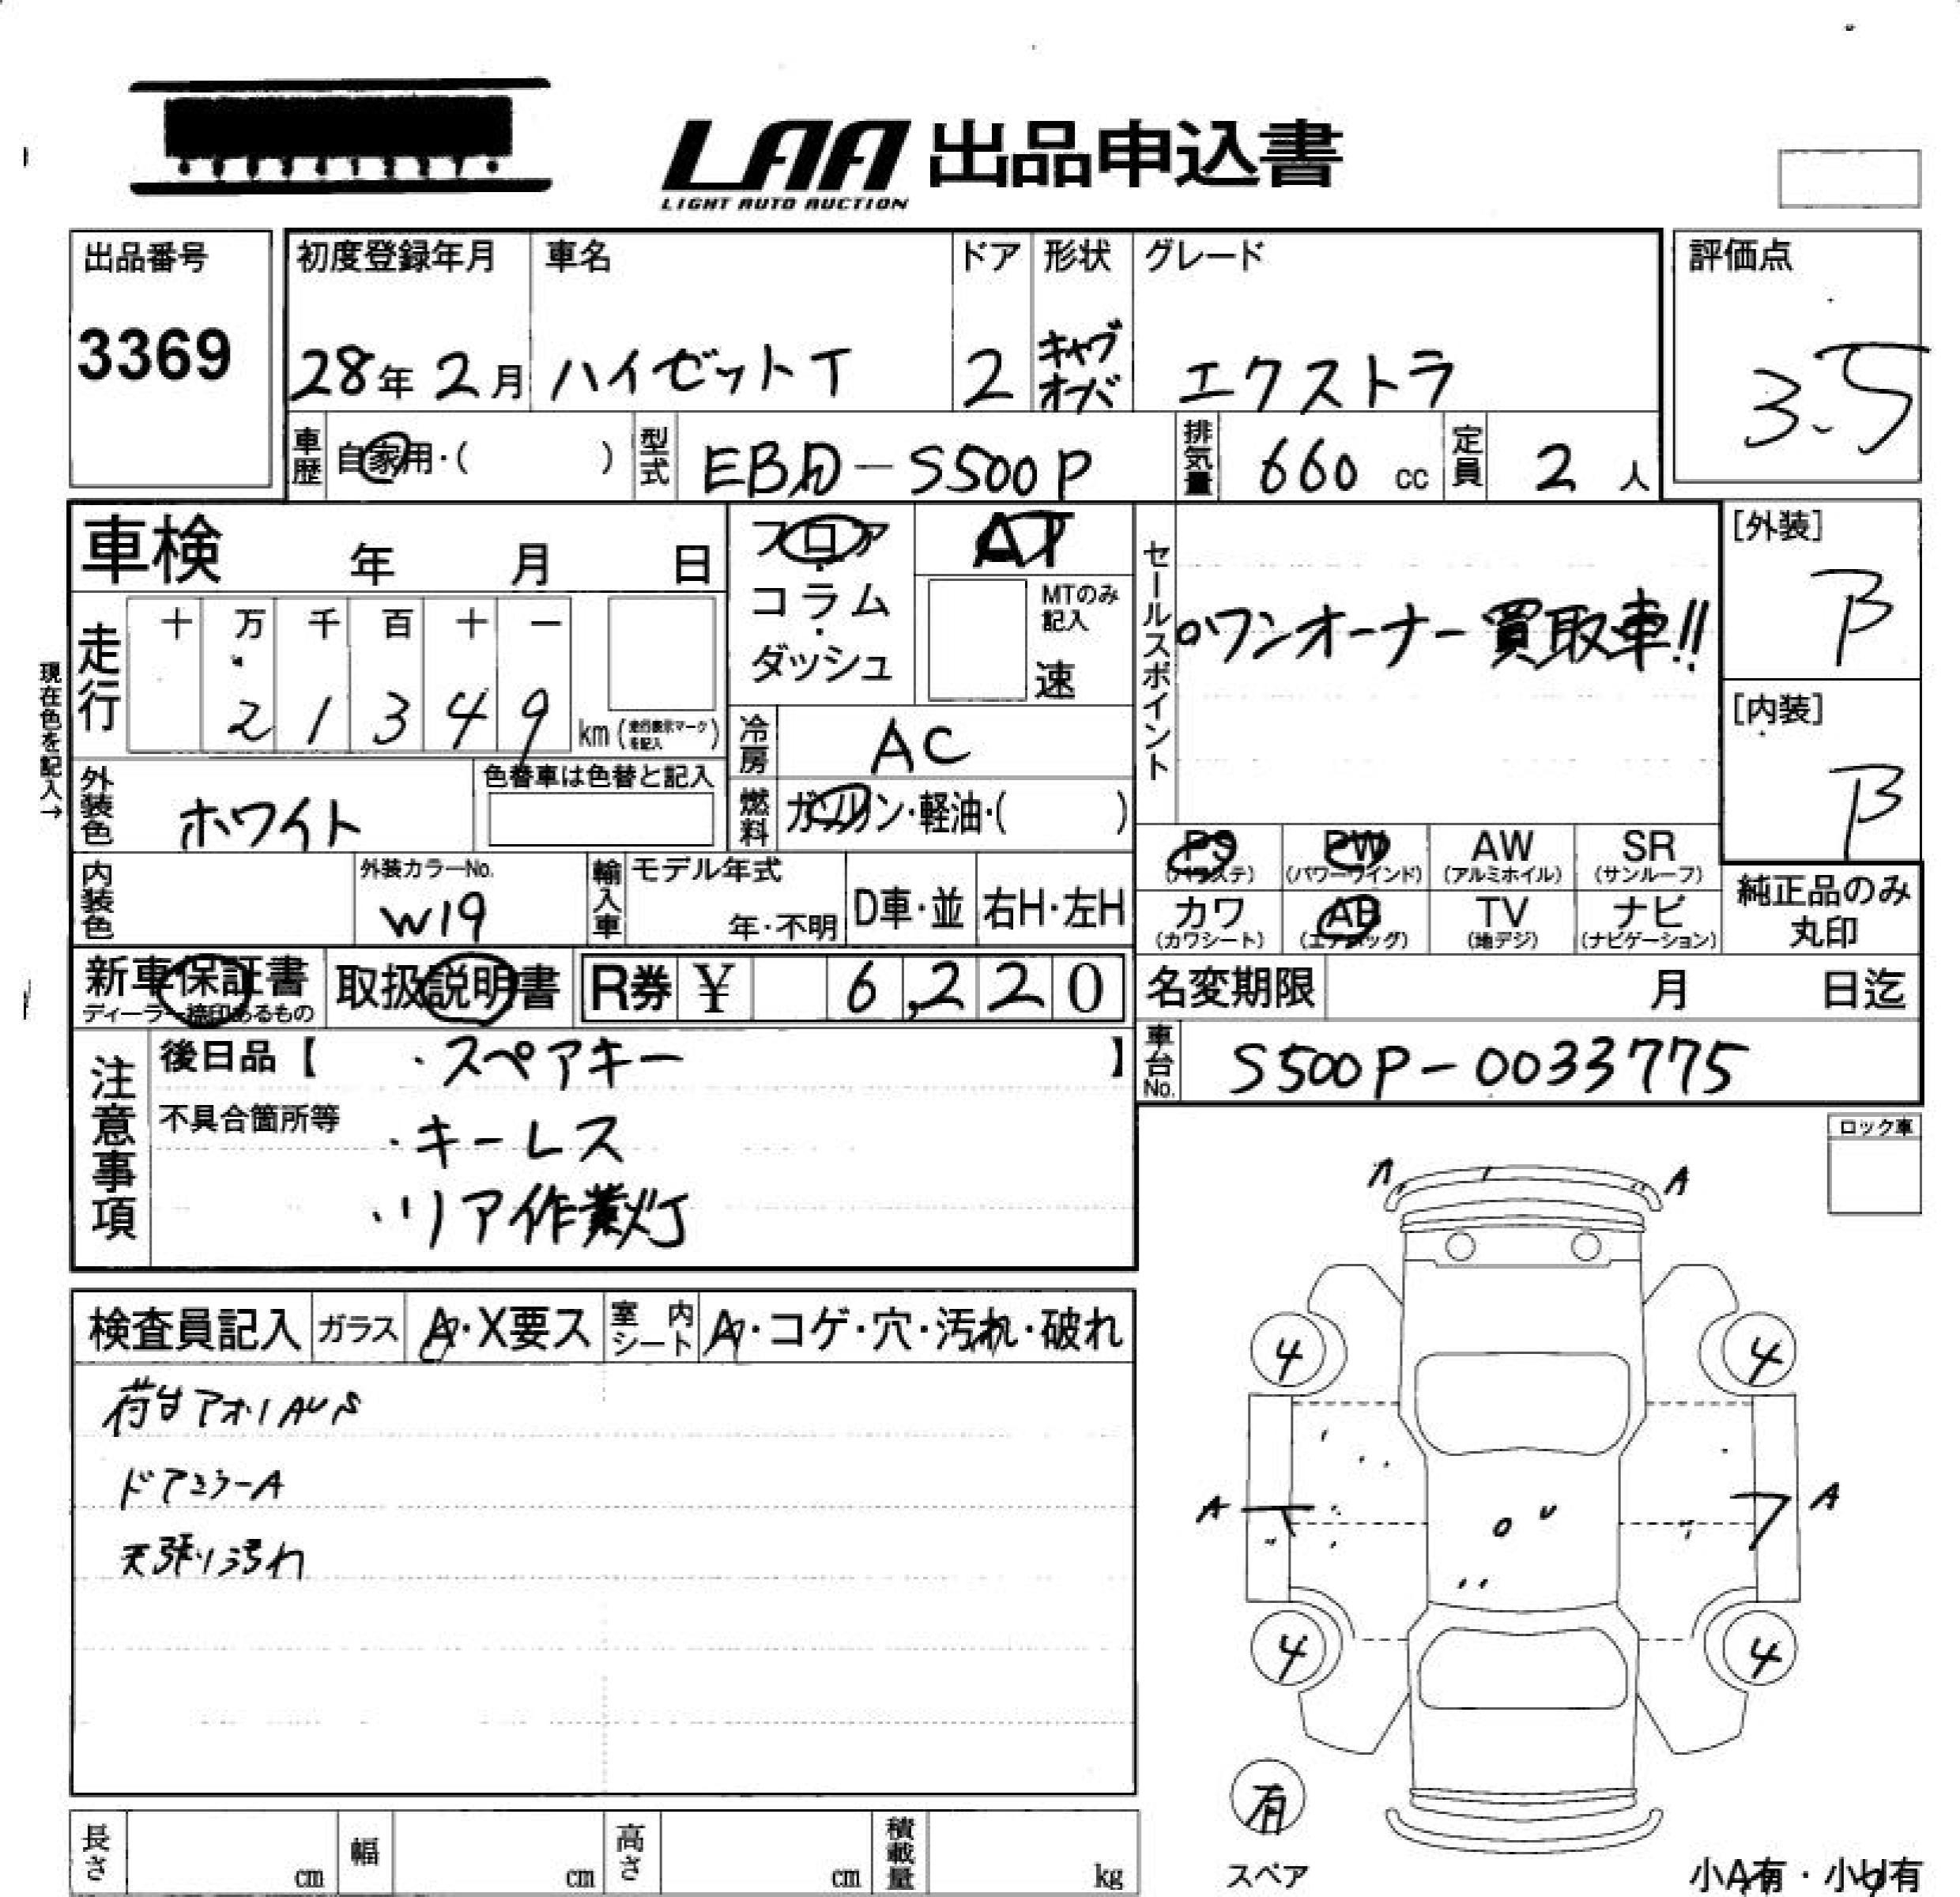 LAA 出品申込書
LIGHT AUTO AUCTION
出品番号
3369
初度登録年月 車名 ドア 形状 グレード
28年 2月 ハイゼットT 2 キャブオーバ エクストラ
評価点
3.5
車歴 自家用・( ) 型式 EBD-S500P 排気量 660 cc 定員 2 人
車検 年 月 日
フロア・コラム・ダッシュ
AT
MTのみ記入
速
セールスポイント
○ワンオーナー買取車!!
[外装]
B
[内装]
B
現在色を記入→
走行 十 万 千 百 十 一
2 1 3 4 9 km (走行表示マークを記入)
冷房 AC
燃料 ガソリン・軽油・( )
外装色 ホワイト
色替車は色替と記入
内装色
外装カラーNo.
W19
輸入車 モデル年式
年・不明 D車・並 右H・左H
PS (パワステ) PW (パワーウインド) AW (アルミホイル) SR (サンルーフ)
カワ (カワシート) AB (エアバッグ) TV (地デジ) ナビ (ナビゲーション)
純正品のみ
丸印
新車保証書
ディーラー捺印あるもの
取扱説明書
R券 ¥ 6,220
名変期限 月 日迄
車台No. S500P-0033775
注意事項
後日品【 ・スペアキー 】
不具合箇所等 ・キーレス
・リア作業灯
ロック車
検査員記入 ガラス A・X要ス 室内シート A・コゲ・穴・汚れ・破れ
荷台アオリAUS
ドアミラーA
天張り汚れ
A A
4 4
A A
4 4
有
スペア
小A有・小U有
長さ cm 幅 cm 高さ cm 積載量 kg